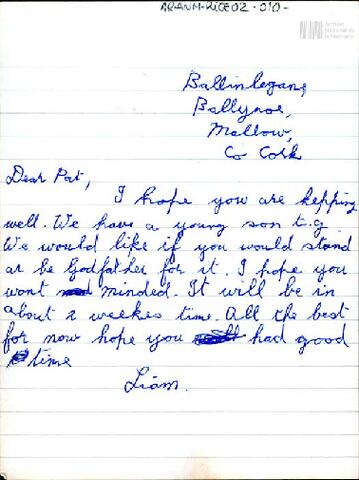 AR-ANM-RICE02-010-
Archivo
Nacional de
la Memoria
Ballinlegane,
Ballynoe,
Mallow,
Co Cork
Dear Pat,
I hope you are kepping
well. We have a young son t.g.
We would like if you would stand
ar be Godfather for it. I hope you
wont minded. It will be in
about 2 weekes time. All the best
for now hope you had good
time
Liam.